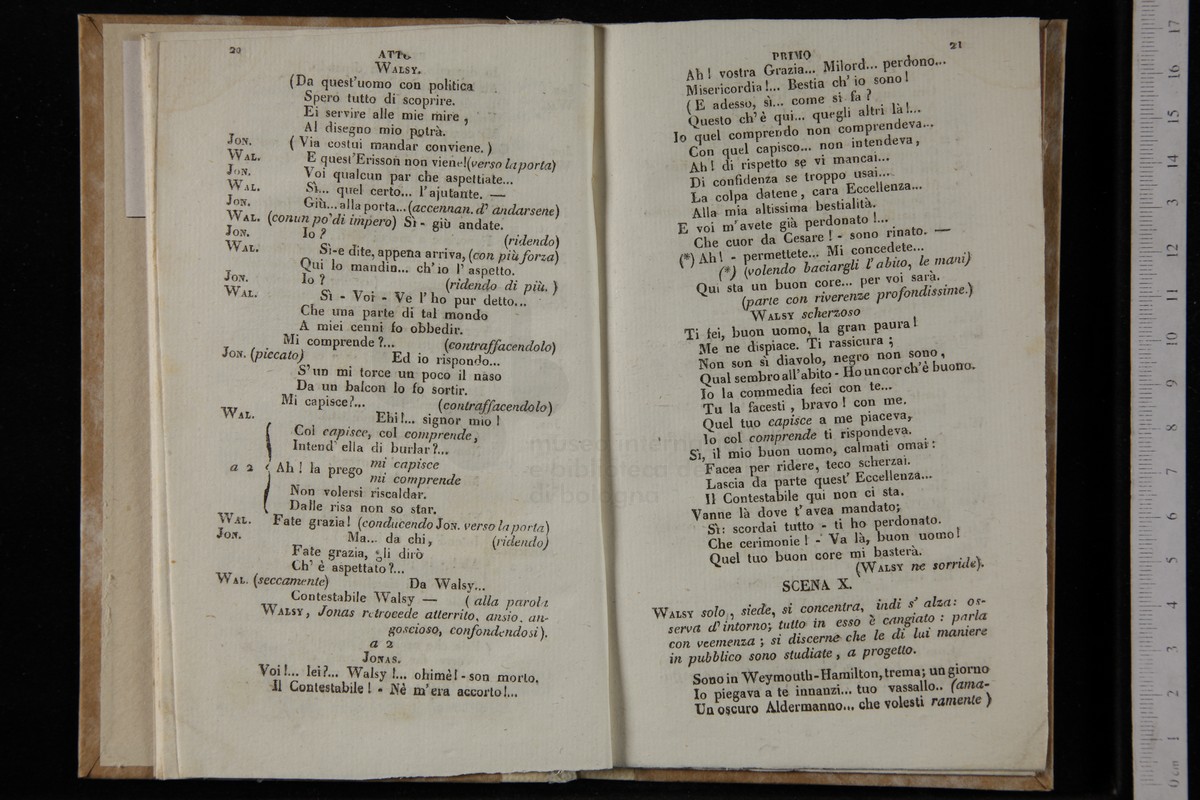 20
ATTO
WALSY.
(Da quest'uomo con politica
Spero tutto di scoprire.
Ei servire alle mie mire,
Al disegno mio potrà.
JON. ( Via costui mandar conviene. )
WAL. E quest'Erisson non viene!(verso la porta)
JON. Voi qualcun par che aspettiate...
WAL. Sì... quel certo... l'ajutante. —
JON. Giù... alla porta...(accennan. d' andarsene)
WAL. (con un po' di impero) Sì - giù andate.
JON. Io ? (ridendo)
WAL. Sì-e dite, appena arriva, (con più forza)
Qui lo mandin... ch'io l' aspetto.
JON. Io ? (ridendo di più. )
WAL. Sì - Voi - Ve l' ho pur detto...
Che una parte di tal mondo
A miei cenni fo obbedir.
Mi comprende ?... (contraffacendolo)
JON. (piccato) Ed io rispondo...
S'un mi torce un poco il naso
Da un balcon lo fo sortir.
Mi capisce?... (contraffacendolo)
WAL. Ehi!... signor mio !
Col capisce, col comprende,
Intend' ella di burlar?...
a 2 Ah ! la prego mi capisce
mi comprende
Non volersi riscaldar.
Dalle risa non so star.
WAL. Fate grazia! (conducendo JON. verso la porta)
JON. Ma... da chi, (ridendo)
Fate grazia, gli dirò
Ch' è aspettato ?...
WAL. (seccamente) Da Walsy...
Contestabile Walsy — ( alla parola
WALSY, Jonas retrocede atterrito, ansio. an-
goscioso, confondendosi ).
a 2
JONAS.
Voi !... lei?... Walsy !... ohimè! - son morto,
Il Contestabile ! - Nè m'era accorto!...
PRIMO
21
Ah ! vostra Grazia... Milord... perdono...
Misericordia !... Bestia ch' io sono !
( E adesso, sì... come si fa ?
Questo ch' è qui... quegli altri là !...
Io quel comprendo non comprendeva...
Con quel capisco... non intendeva,
Ah ! di rispetto se vi mancai...
Di confidenza se troppo usai...
La colpa datene, cara Eccellenza...
Alla mia altissima bestialità.
E voi m'avete già perdonato !...
Che cuor da Cesare ! - sono rinato. —
(*) Ah ! - permettete... Mi concedete...
(*) (volendo baciargli l' abito, le mani)
Qui sta un buon core... per voi sarà.
(parte con riverenze profondissime.)
WALSY scherzoso
Ti fei, buon uomo, la gran paura !
Me ne dispiace. Ti rassicura ;
Non son sì diavolo, negro non sono,
Qual sembro all'abito - Ho un cor ch'è buono.
Io la commedia feci con te...
Tu la facesti , bravo ! con me.
Quel tuo capisce a me piaceva,
Io col comprende ti rispondeva.
Sì, il mio buon uomo, calmati omai :
Facea per ridere, teco scherzai.
Lascia da parte quest' Eccellenza...
Il Contestabile qui non ci sta.
Vanne là dove t' avea mandato;
Sì: scordai tutto - ti ho perdonato.
Che cerimonie ! - Va là, buon uomo !
Quel tuo buon core mi basterà.
(WALSY ne sorride).
SCENA X.
WALSY solo , siede, si concentra, indi s' alza: os-
serva d'intorno; tutto in esso è cangiato : parla
con veemenza ; si discerne che le di lui maniere
in pubblico sono studiate , a progetto.
Sono in Weymouth-Hamilton, trema; un giorno
Io piegava a te innanzi... tuo vassallo.. (ama-
Un oscuro Aldermanno... che volesti ramente )
museo intern
e biblioteca de
di bologna
0 cm 1 2 3 4 5 6 7 8 9 10 11 12 13 14 15 16 17